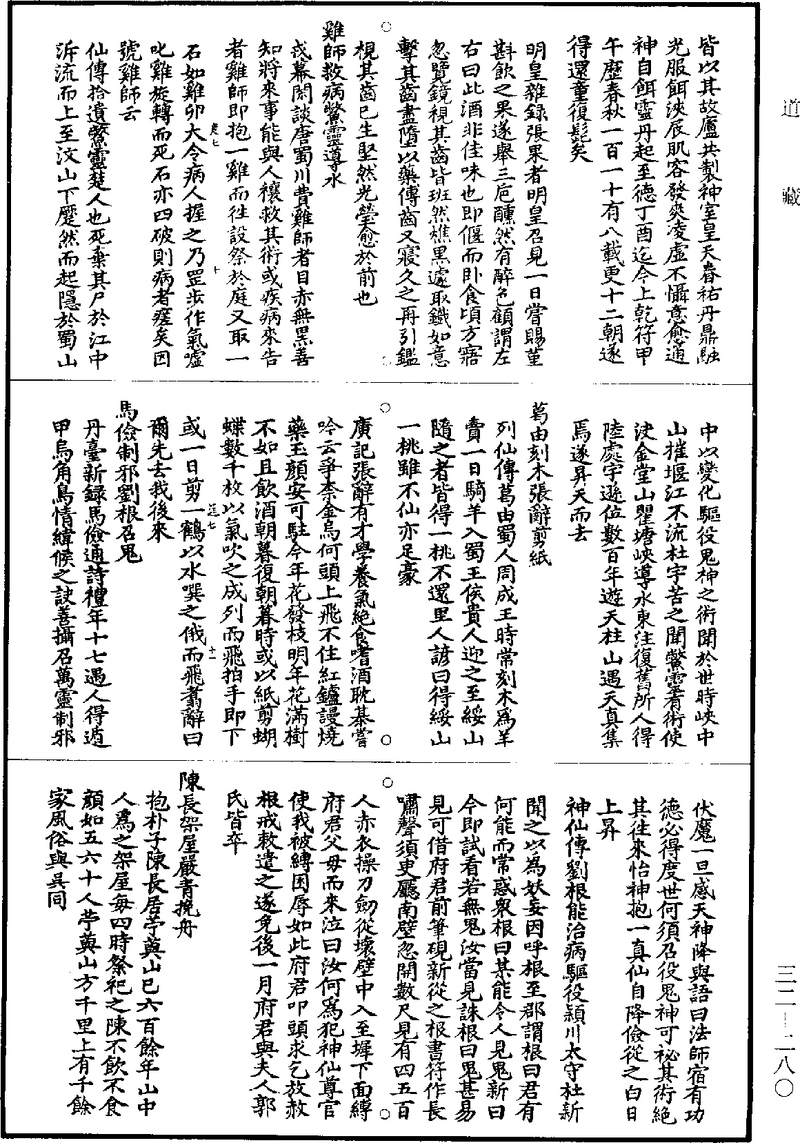 道藏
皆以其故廬共製神室皇天眷祐丹鼎融
光服餌浹辰肌客發爽凌虛不懾意愈通
神自餌靈丹起至德丁酉迄今上乾符甲
午歷春秋一百一十有八載更十二朝遂
得還童復髭矣
明皇雜錄張果者明皇召見一日嘗賜菫
斟飲之果遂舉三巵醺然有醉色顧謂左
右曰此酒非佳味也即偃而卧食頃方寤
忽覽鏡視其齒皆班然燋黑遽取鐵如意
擊其齒盡墮以藥傅齒又寢久之再引鑑
視其齒已生堅然光瑩愈於前也
雞師救病鱉靈導水
戎幕閑談唐蜀川費雞師者目赤無黑善
知將來事能與人禳救其術或疾病來告
者雞師即抱一雞而往設祭於庭又取一
石如雞卵大令病人握之乃罡步作氣噓
叱雞旋轉而死石亦四破則病者瘥矣因
號雞師云
仙傳拾遺鱉靈楚人也死棄其尸於江中
泝流而上至汶山下蹷然而起隱於蜀山
中以變化驅役鬼神之術聞於世時峽中
山摧堰江不流杜宇苦之聞鱉靈有術使
決金堂山瞿塘峽導水東注復舊所人得
陸處宇遜位數百年遊天柱山遇天真集
焉遂昇天而去
葛由刻木張辭剪紙
列仙傳葛由蜀人周成王時常刻木為羊
賣一日騎羊入蜀王侯貴人迎之至綏山
隨之者皆得一桃不還里人諺曰得綏山
一桃雖不仙亦足豪
廣記張辭有才學養氣絶食嗜酒耽棊嘗
吟云爭奈金烏何頭上飛不住紅鑪謾燒
藥玉顏安可駐今年花發枝明年花滿樹
不如且飲酒朝暮復朝暮時或以紙剪蝴
蝶數千枚以氣吹之成列而飛拍手即下
或一日剪一鶴以水噀之俄而飛翥辭曰
爾先去我後來
馬儉制邪劉根召鬼
丹臺新録馬儉通詩禮年十七遇人得遁
甲烏角鳥情緯候之訣善攝召萬靈制邪
伏魔一旦感天神降與語曰法師宿有功
德必得度世何須召役鬼神可祕其術絶
其往來怡神抱一真仙自降儉從之白日
上昇
神仙傳劉根能治病驅役頴川太守杜新
聞之以為妖妄因呼根至郡謂根曰君有
何能而常惑衆根曰某能令人見鬼新曰
今即試看若無鬼汝當見誅根曰鬼甚易
見可借府君前筆硯新從之根書符作長
嘯聲須臾廳南壁忽開數尺見有四五百
人赤衣操刀劒從壞壁中入至墀下面縛
府君父母而來泣曰汝何為犯神仙尊官
使我被縛困辱如此府君叩頭求乞放赦
根戒敕遣之遂免後一月府君與夫人郭
氏皆卒
陳長架屋嚴青挽舟
抱朴子陳長居苧奠山已六百餘年山中
人為之架屋每四時祭祀之陳不飲不食
顏如五六十人苧奠山方千里上有千餘
家風俗與吳同
三二—二八〇